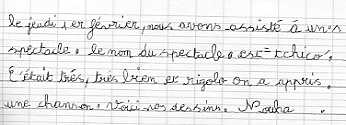 le jeudi 1 er février, nous avons assisté à un
spectacle. le nom du spectacle est = tchico.
C'était très, très bien et rigolo on a appris
une chanson. Voici nos dessins. Nouha.